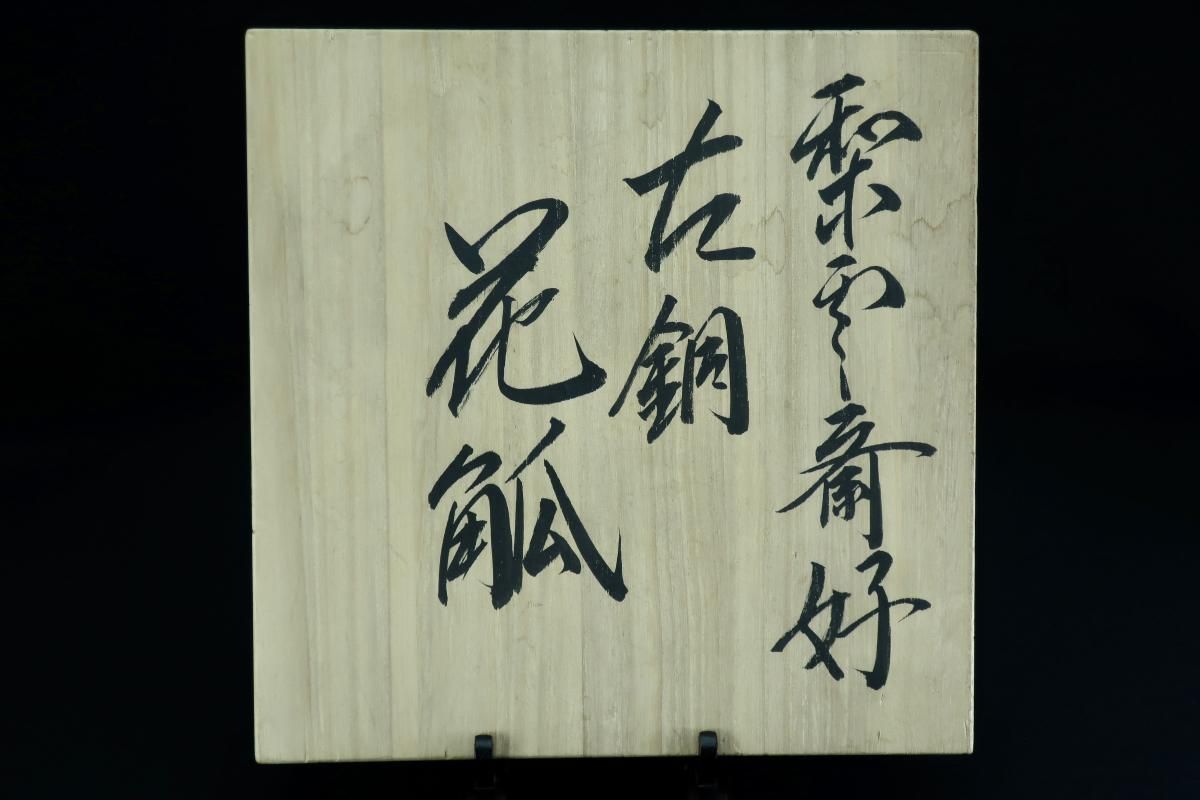 梨雲斎好
古銅
花觚